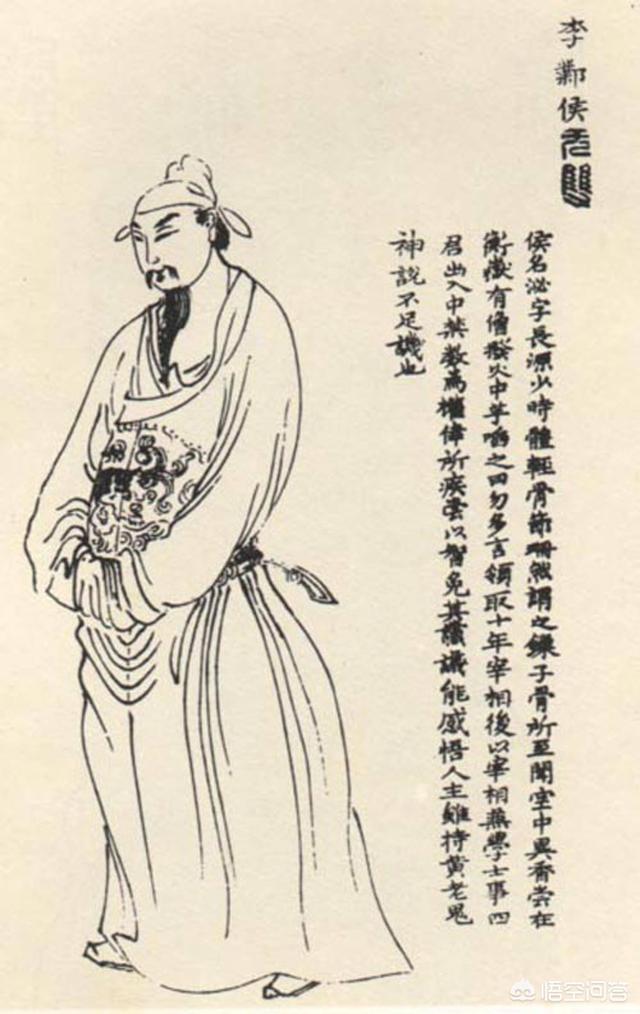 李鄴侯无雙
侯名泌字長源少時體輕骨節珊然謂之鏁子骨所至聞空中異香嘗在
衡嶽有僧撥火中芋啗之曰勿多言領取十年宰相後以宰相兼學士事四
君出入中禁數為權倖所疾常以智免其讜議能感悟人主雖持黃老鬼
神說不足譏也
悟空问答